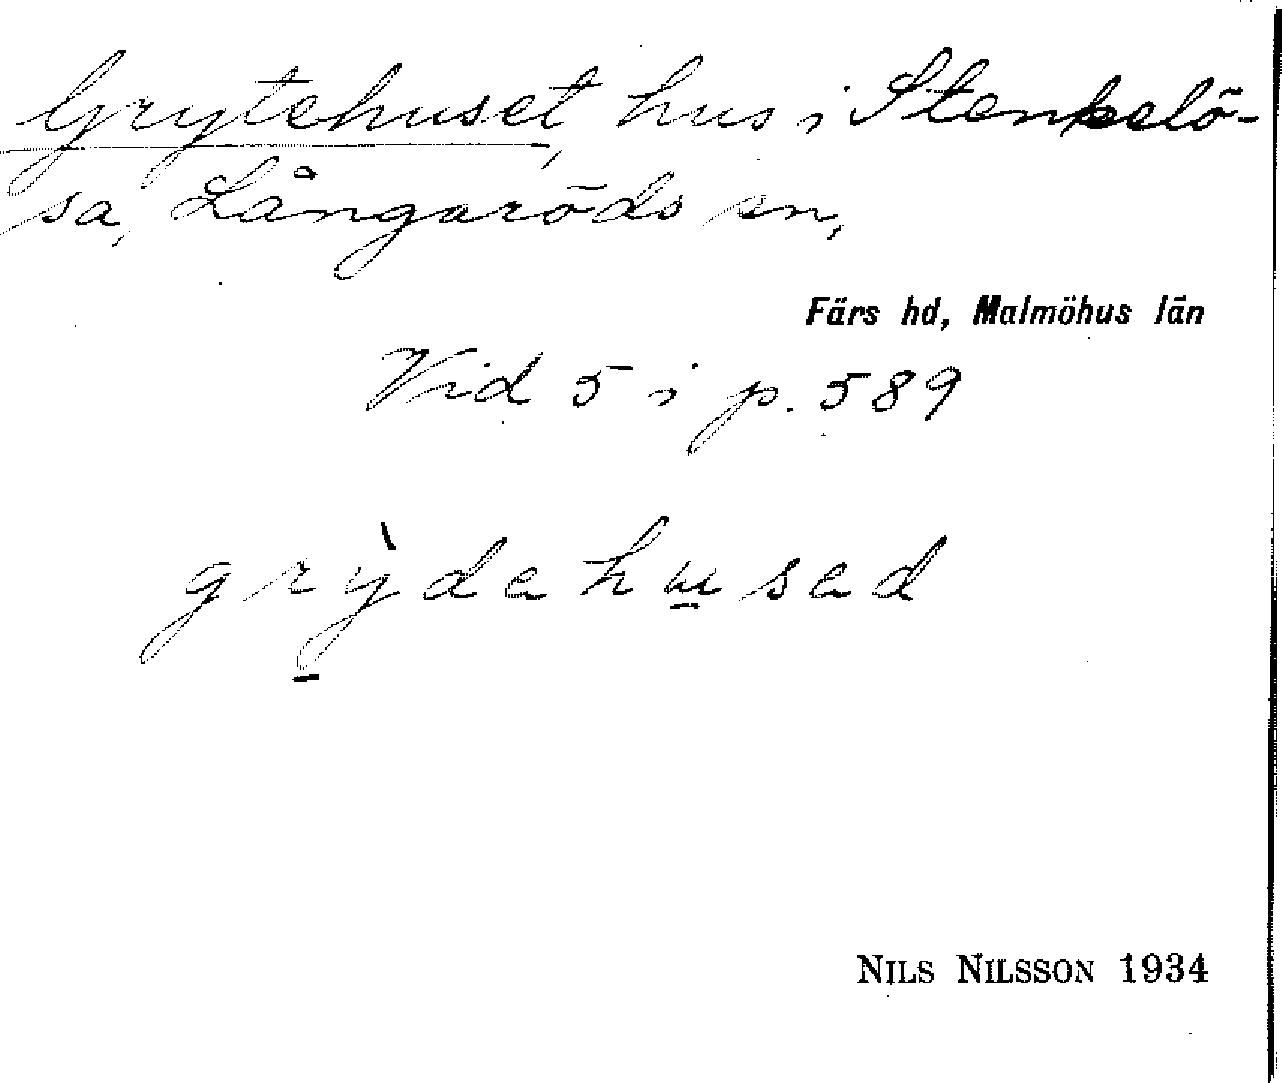 Grytehuset, hus i Stenkelö-
sa, Långaröds sn,
Färs hd, Malmöhus län
Vid 5 i p. 589
grỳ̱dahu̱sad
NILS NILSSON 1934